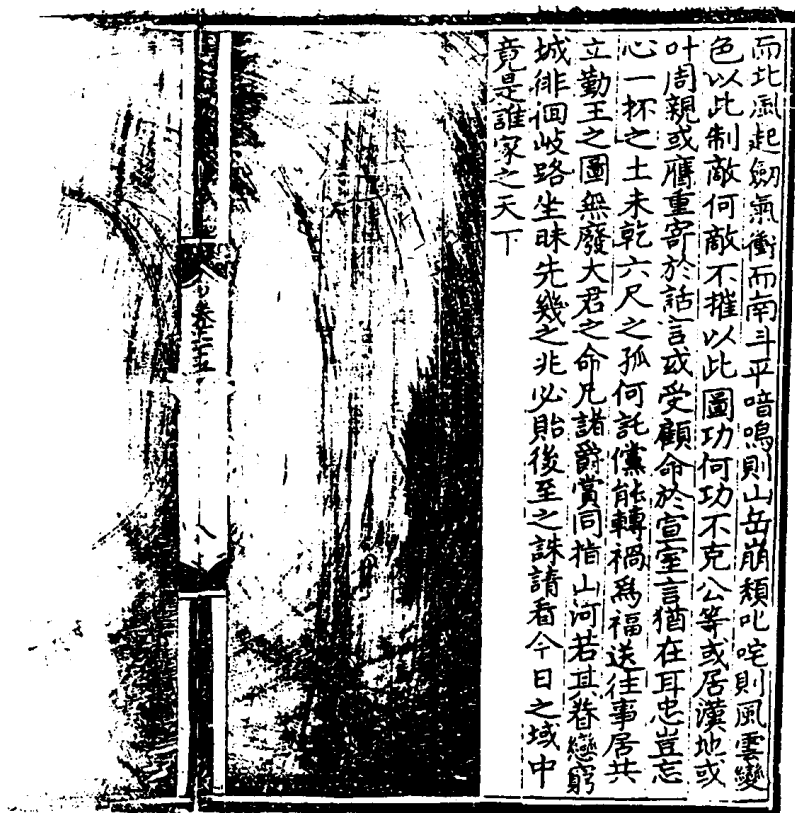 而北風起劒氣衝而南斗平喑鳴則山岳崩頹叱咤則風雲變
色以此制敵何敵不摧以此圖功何功不克公等或居漢地或
叶周親或膺重寄於話言或受顧命於宣室言猶在耳忠豈忘
心一抔之土未乾六尺之孤何託儻能轉禍爲福送往事居共
立勤王之圖無廢大君之命凡諸爵賞同指山河若其眷戀窮
城徘徊岐路坐昧先幾之兆必貽後至之誅請看今日之域中
竟是誰家之天下
卷二十五
八